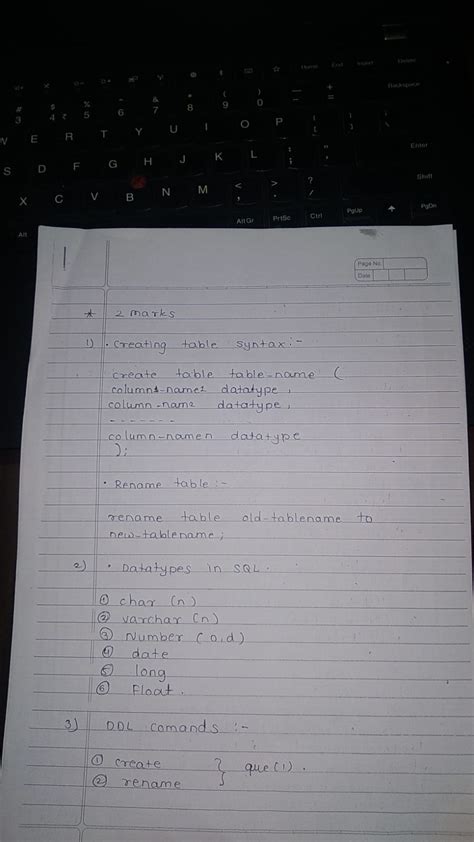 Home End Insert Delete
# $ % ^ & * ( ) — +
3 4 ₹ 5 6 7 8 9 0 - = Backspace
W E R T Y U I O P { }
[ ]
Enter
S D F G H J K L : "
; '
Shift
X C V B N M < > ?
, . /
Alt Alt Gr PrtSc Ctrl PgUp PgDn
1
Page No.
Date
* 2 marks
1) • Creating table syntax:-
create table table-name (
column1-name1 datatype,
column-nam2 datatype,
-------
column-namen datatype
);
• Rename table:-
rename table old-tablename to
new-tablename;
2) • Datatypes in SQL.
① char (n)
② varchar (n)
③ Number (o,d)
④ date
⑤ long
⑥ Float.
3) DDL comands :-
① create } que(1).
② rename